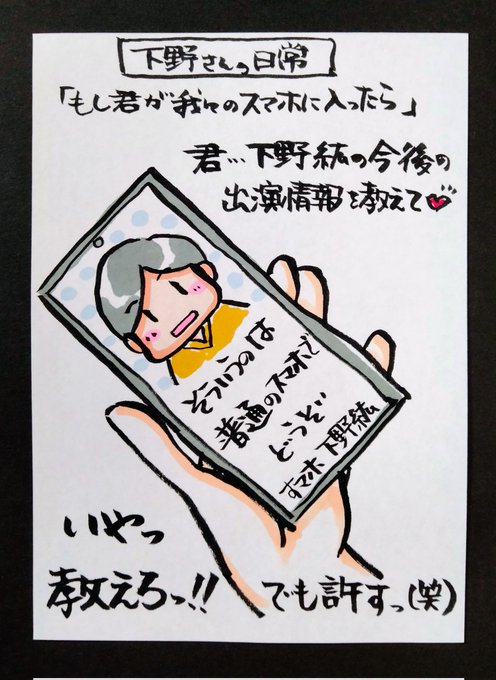 下野さんっ日常
「もし君が我々のスマホに入ったら」
君…下野紘の今後の
出演情報を教えて
そういうのは
普通のスマホで
どうぞ
スマホ 下野紘
いやっ
教えろっ!!
でも許すっ(笑)